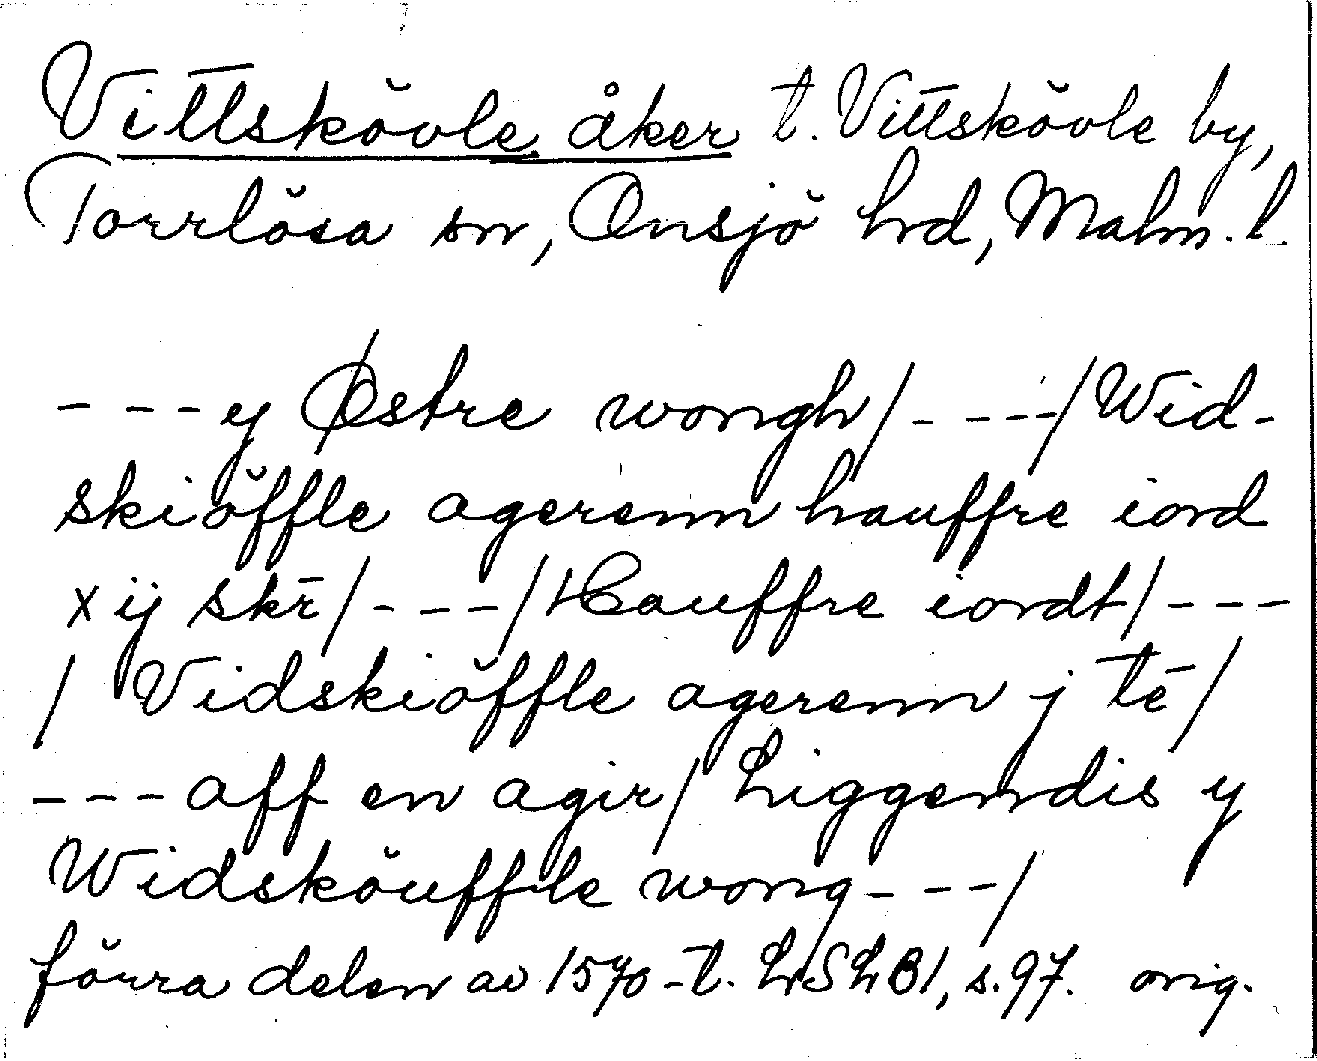 Vittskövle åker t. Vittskövle by,
Torrlösa sn, Onsjö hrd, Malm. l.
---y Østre wongh/---/Wid-
skiöffle agerenn hauffre iord
x ij skr̄/---/Hauffre iordt/---
/Vidskiöffle agerenn j tē/
---aff en agir/Liggendis y
Widsköuffle wong---/
förra delen av 1570-t. LSLB1, s.97. orig.